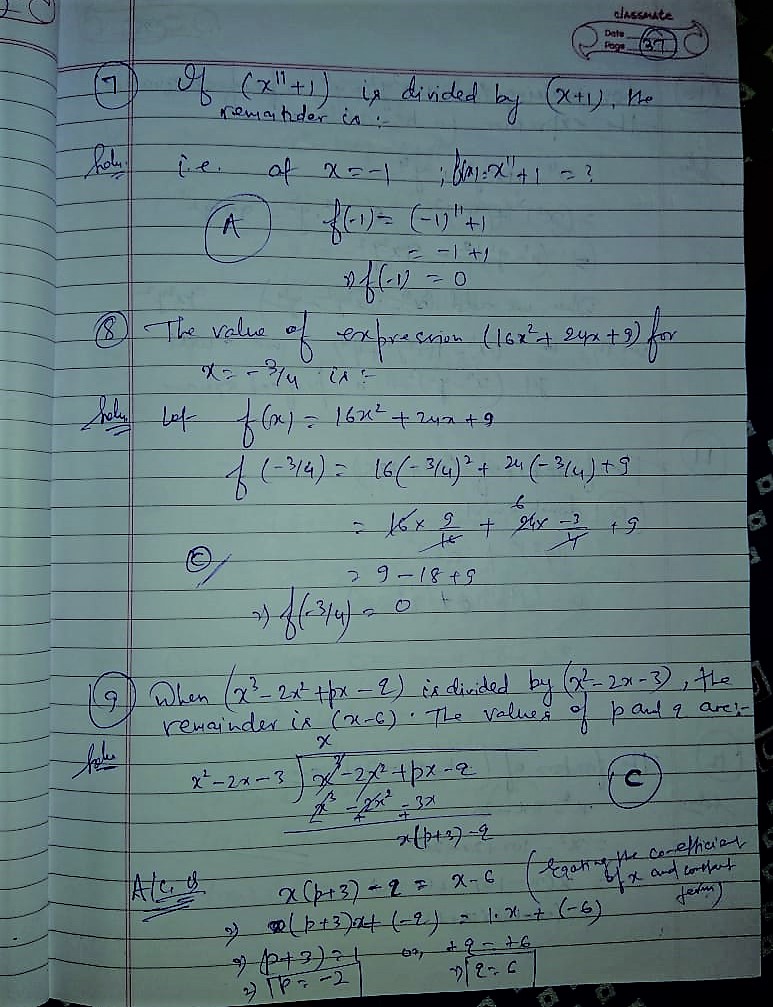 classmate
Date
Page 37
7 If (x¹¹+1) is divided by (x+1), the
remainder is :-
Soln. i.e. at x = -1 ; f(x) = x¹¹+1 = ?
A f(-1) = (-1)¹¹+1
= -1+1
⇒ f(-1) = 0
8 The value of expression (16x²+24x+9) for
x = -3/4 is :-
Soln. Let f(x) = 16x²+24x+9
f(-3/4) = 16(-3/4)² + 24(-3/4)+9
6
= 16 x 9/16 + 24x -3/4 +9
C
= 9-18+9
⇒ f(-3/4) = 0
9 When (x³-2x²+px-q) is divided by (x²-2x-3), the
remainder is (x-6). The values of p and q are:-
x
Soln x²-2x-3 ) x³-2x²+px-q
C
x³-2x²-3x
- + +
x(p+3)-q
A/c, q x(p+3)-q = x-6 (Equating the co-efficient
of x and constant
term)
⇒ (p+3)x+(-q) = 1.x+(-6)
⇒ (p+3)=1 or, +q = +6
⇒ p = -2 ⇒ q = 6